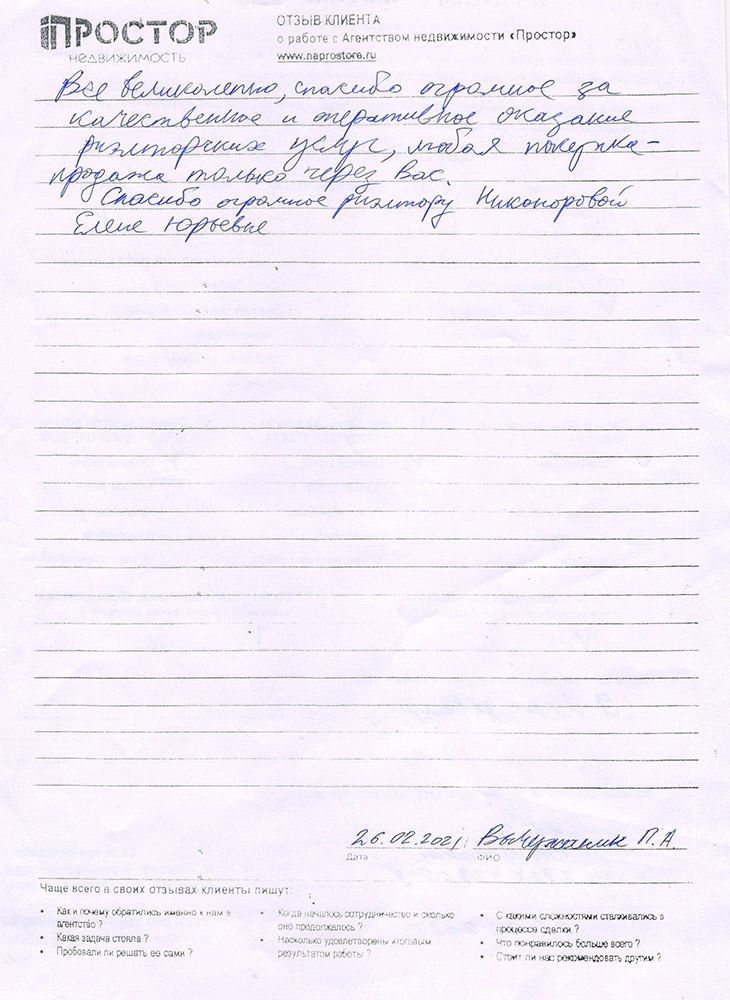 ПРОСТОР
недвижимость
ОТЗЫВ КЛИЕНТА
о работе с Агентством недвижимости «Простор»
www.naprostore.ru
Все великолепно, спасибо огромное за
качественное и оперативное оказание
риэлторских услуг, любая покупка-
продажа только через Вас.
Спасибо огромное риэлтору Никоноровой
Елене Юрьевне
26.02.2021 П.А.
Дата ФИО
Чаще всего в своих отзывах клиенты пишут:
• Как и почему обратились именно к нам в
агентство ?
• Какая задача стояла ?
• Пробовали ли решать ее сами ?
• Когда началось сотрудничество и сколько
оно продолжалось ?
• Насколько удовлетворены итоговым
результатом работы ?
• С какими сложностями сталкивались в
процессе сделки ?
• Что понравилось больше всего ?
• Стоит ли нас рекомендовать другим ?